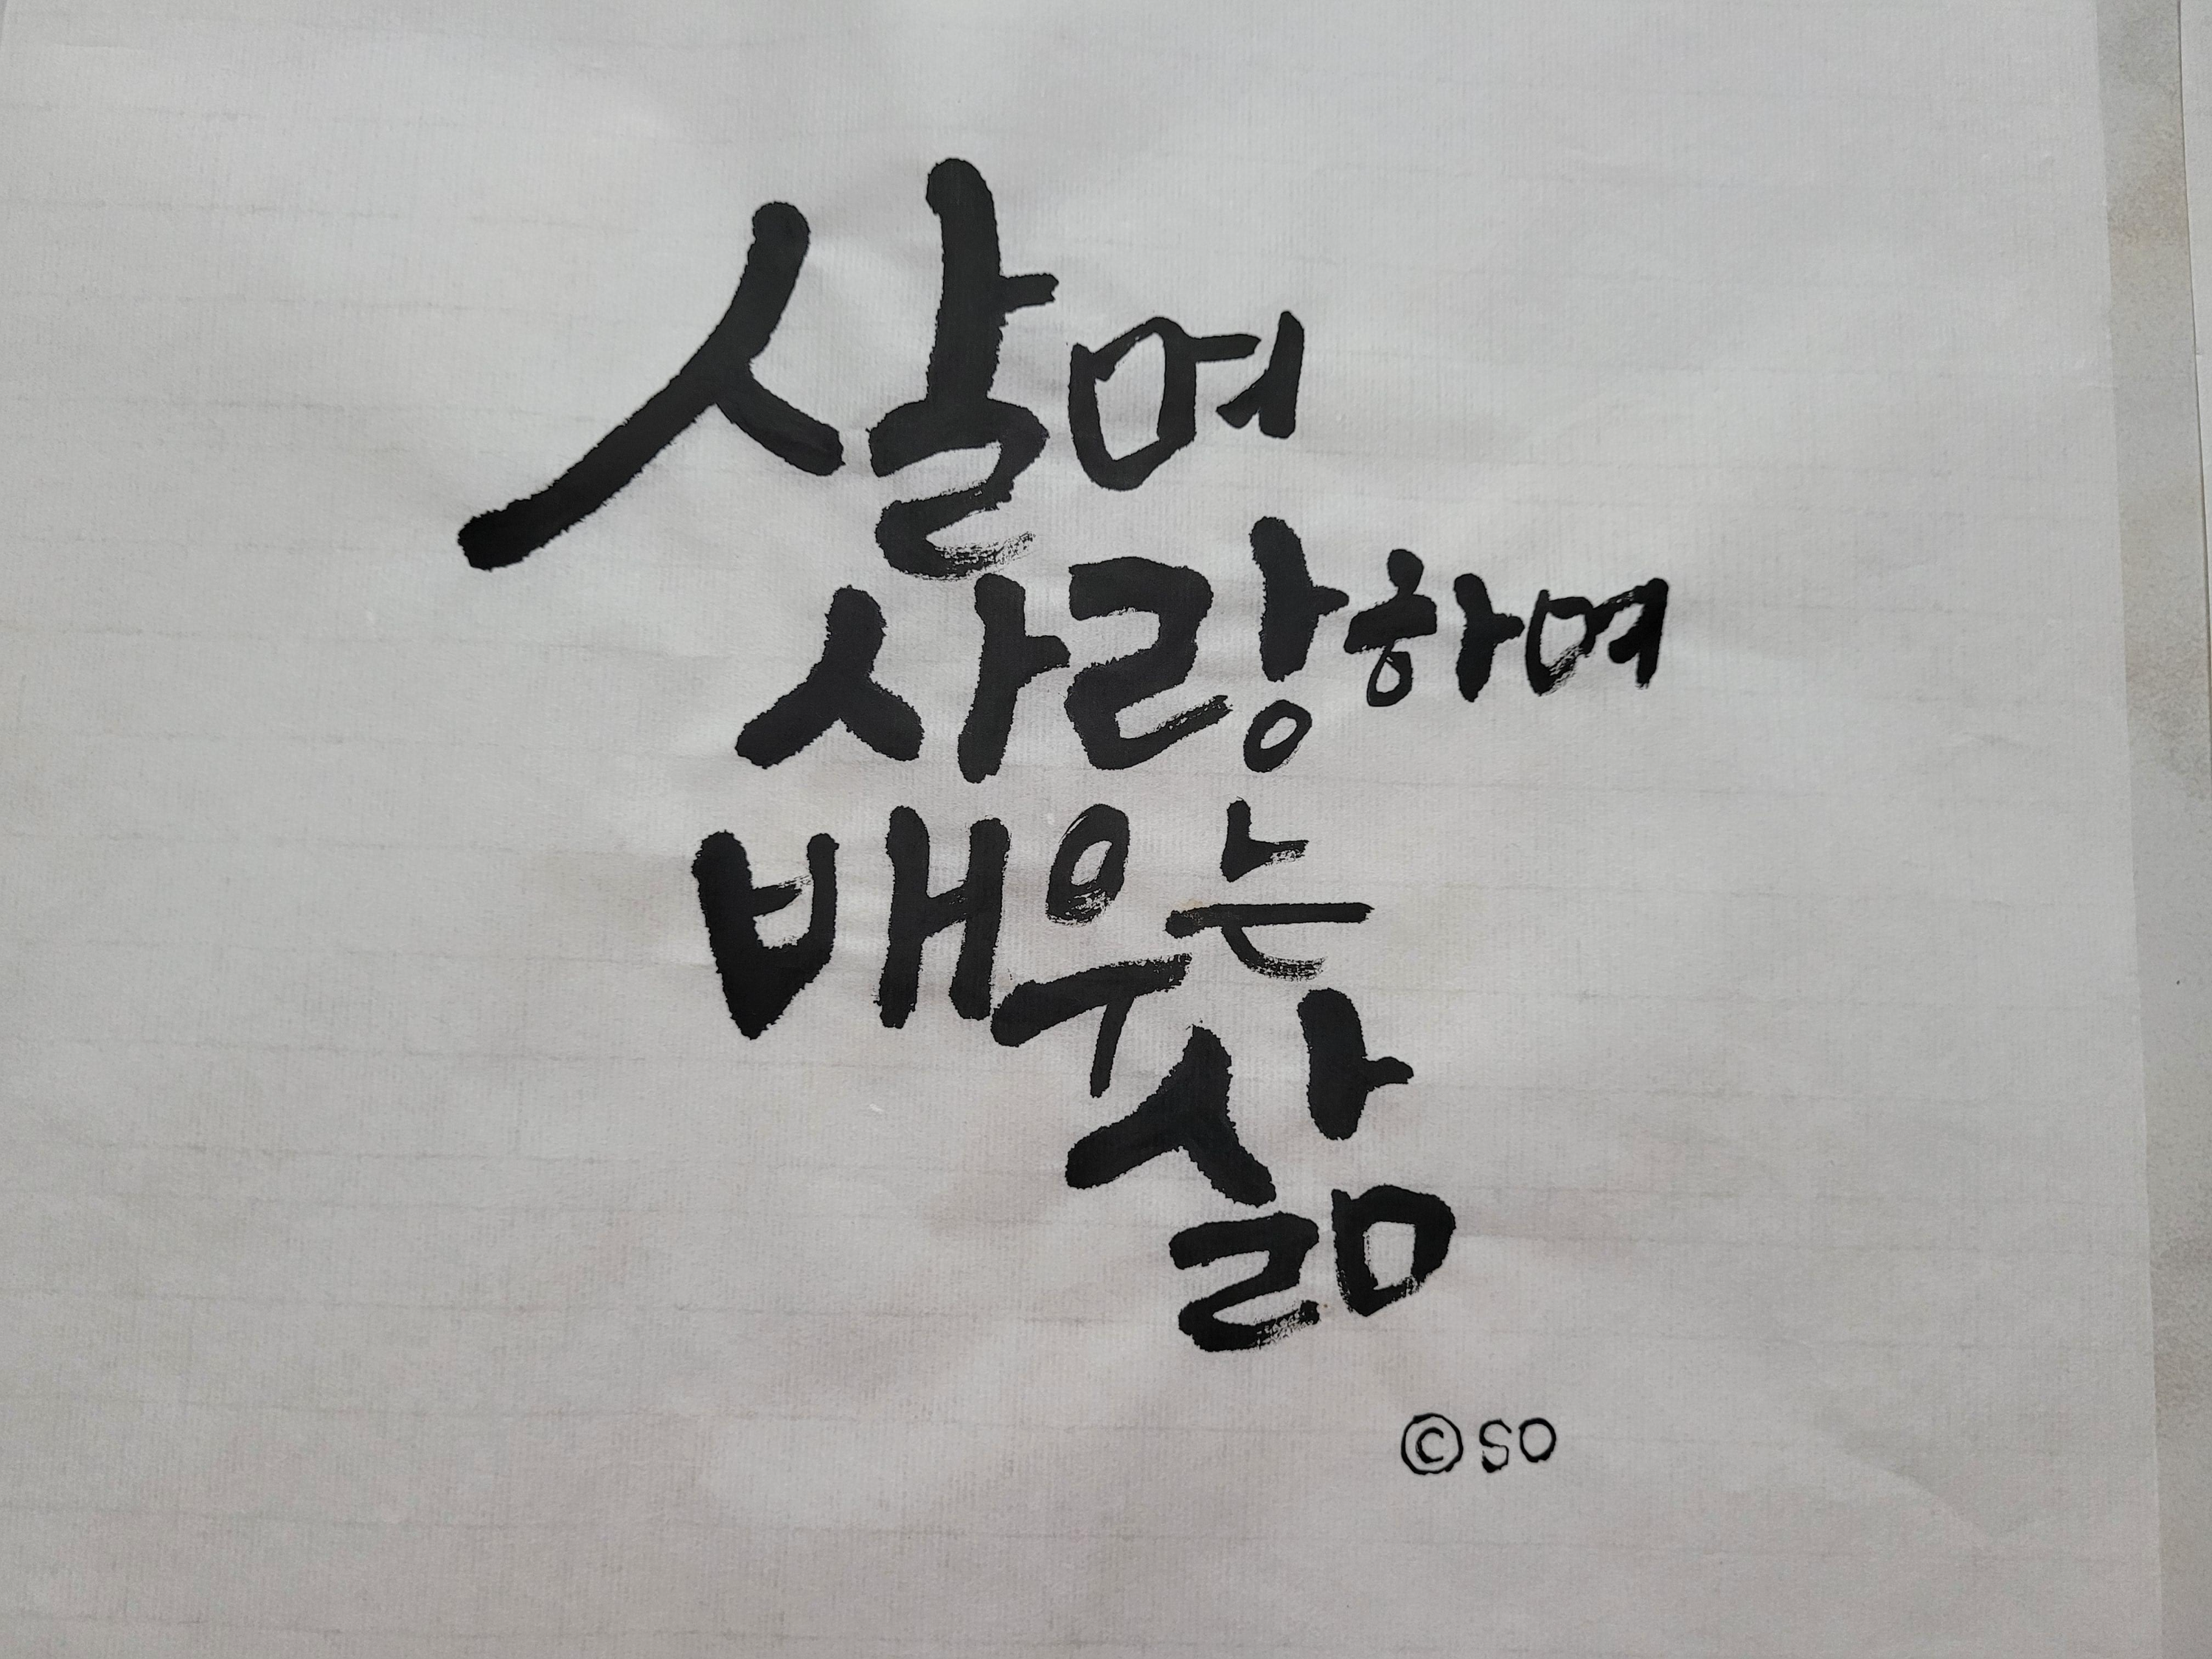 살며
사랑하며
배우는
삶
©so